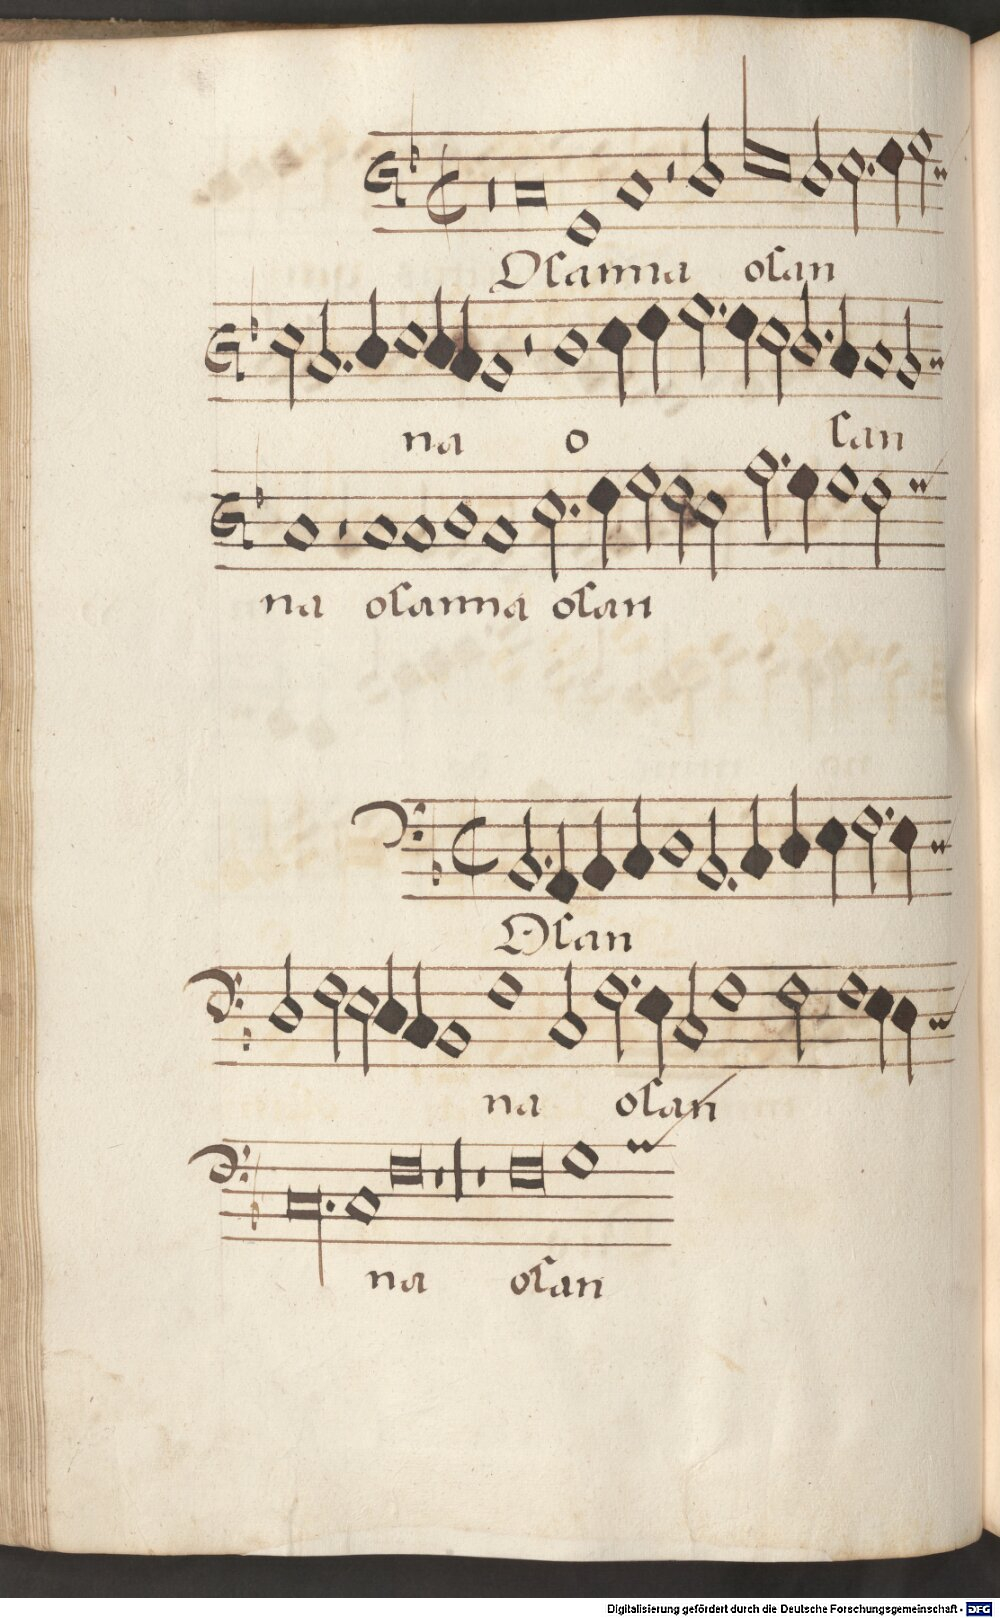 Osanna osan
na o san
na osanna osan
Osan
na osan
na osan
Digitalisierung gefördert durch die Deutsche Forschungsgemeinschaft - DFG